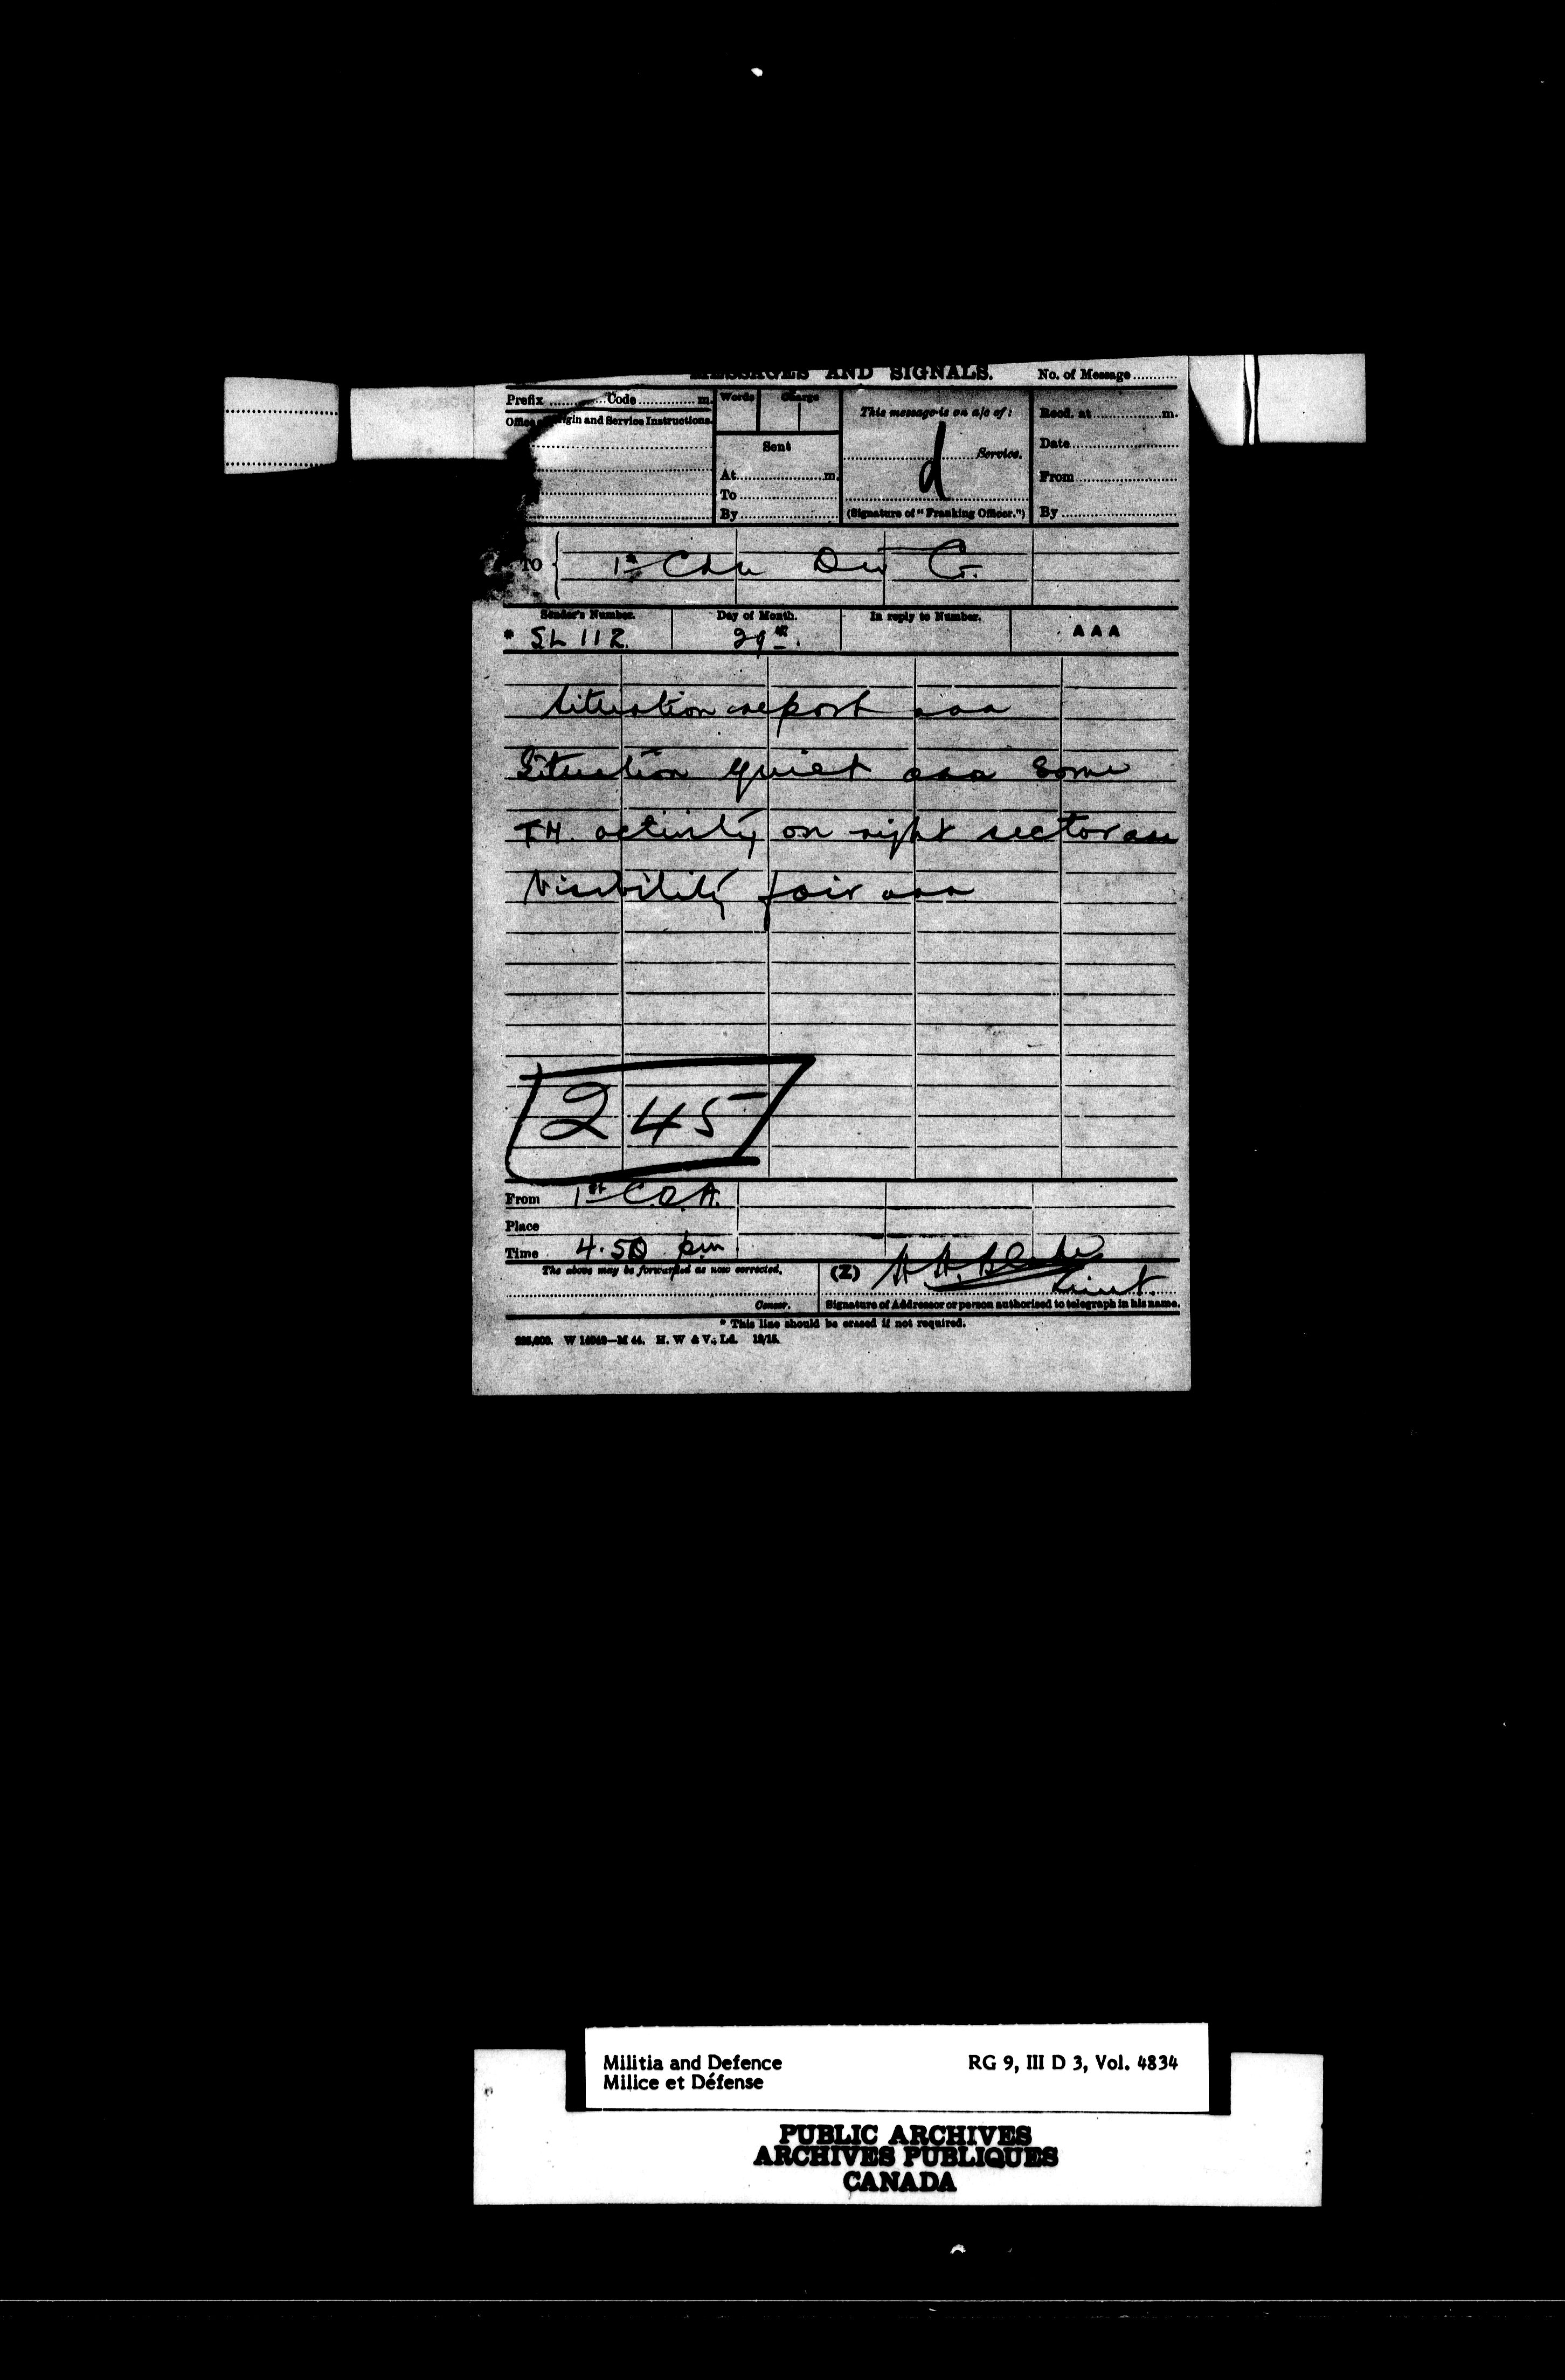 MESSAGES AND SIGNALS. No. of Message............
Prefix ............Code..............m. Words Charge This message is on a/c of: Recd. at................m.
Office Origin and Service Instructions.
Sent d ................Service. Date................
At................m. From................
To................
By................ (Signature of "Franking Officer.") By................
TO { 1st Cdn Div G.
Sender's Number. Day of Month. In reply to Number. AAA
* SL 112. 29th.
Situation report aaa
Situation quiet aaa Some
T.M. activity on right sector aaa
Visibility fair aaa
245
From 1st C.D.A.
Place
Time 4.50 pm
The above may be forwarded as now corrected. (Z) Lieut.
Censor. Signature of Addressor or person authorised to telegraph in his name.
* This line should be erased if not required.
H. W & V., Ld. 12/15.
Militia and Defence RG 9, III D 3, Vol. 4834
Milice et Défense
PUBLIC ARCHIVES
ARCHIVES PUBLIQUES
CANADA